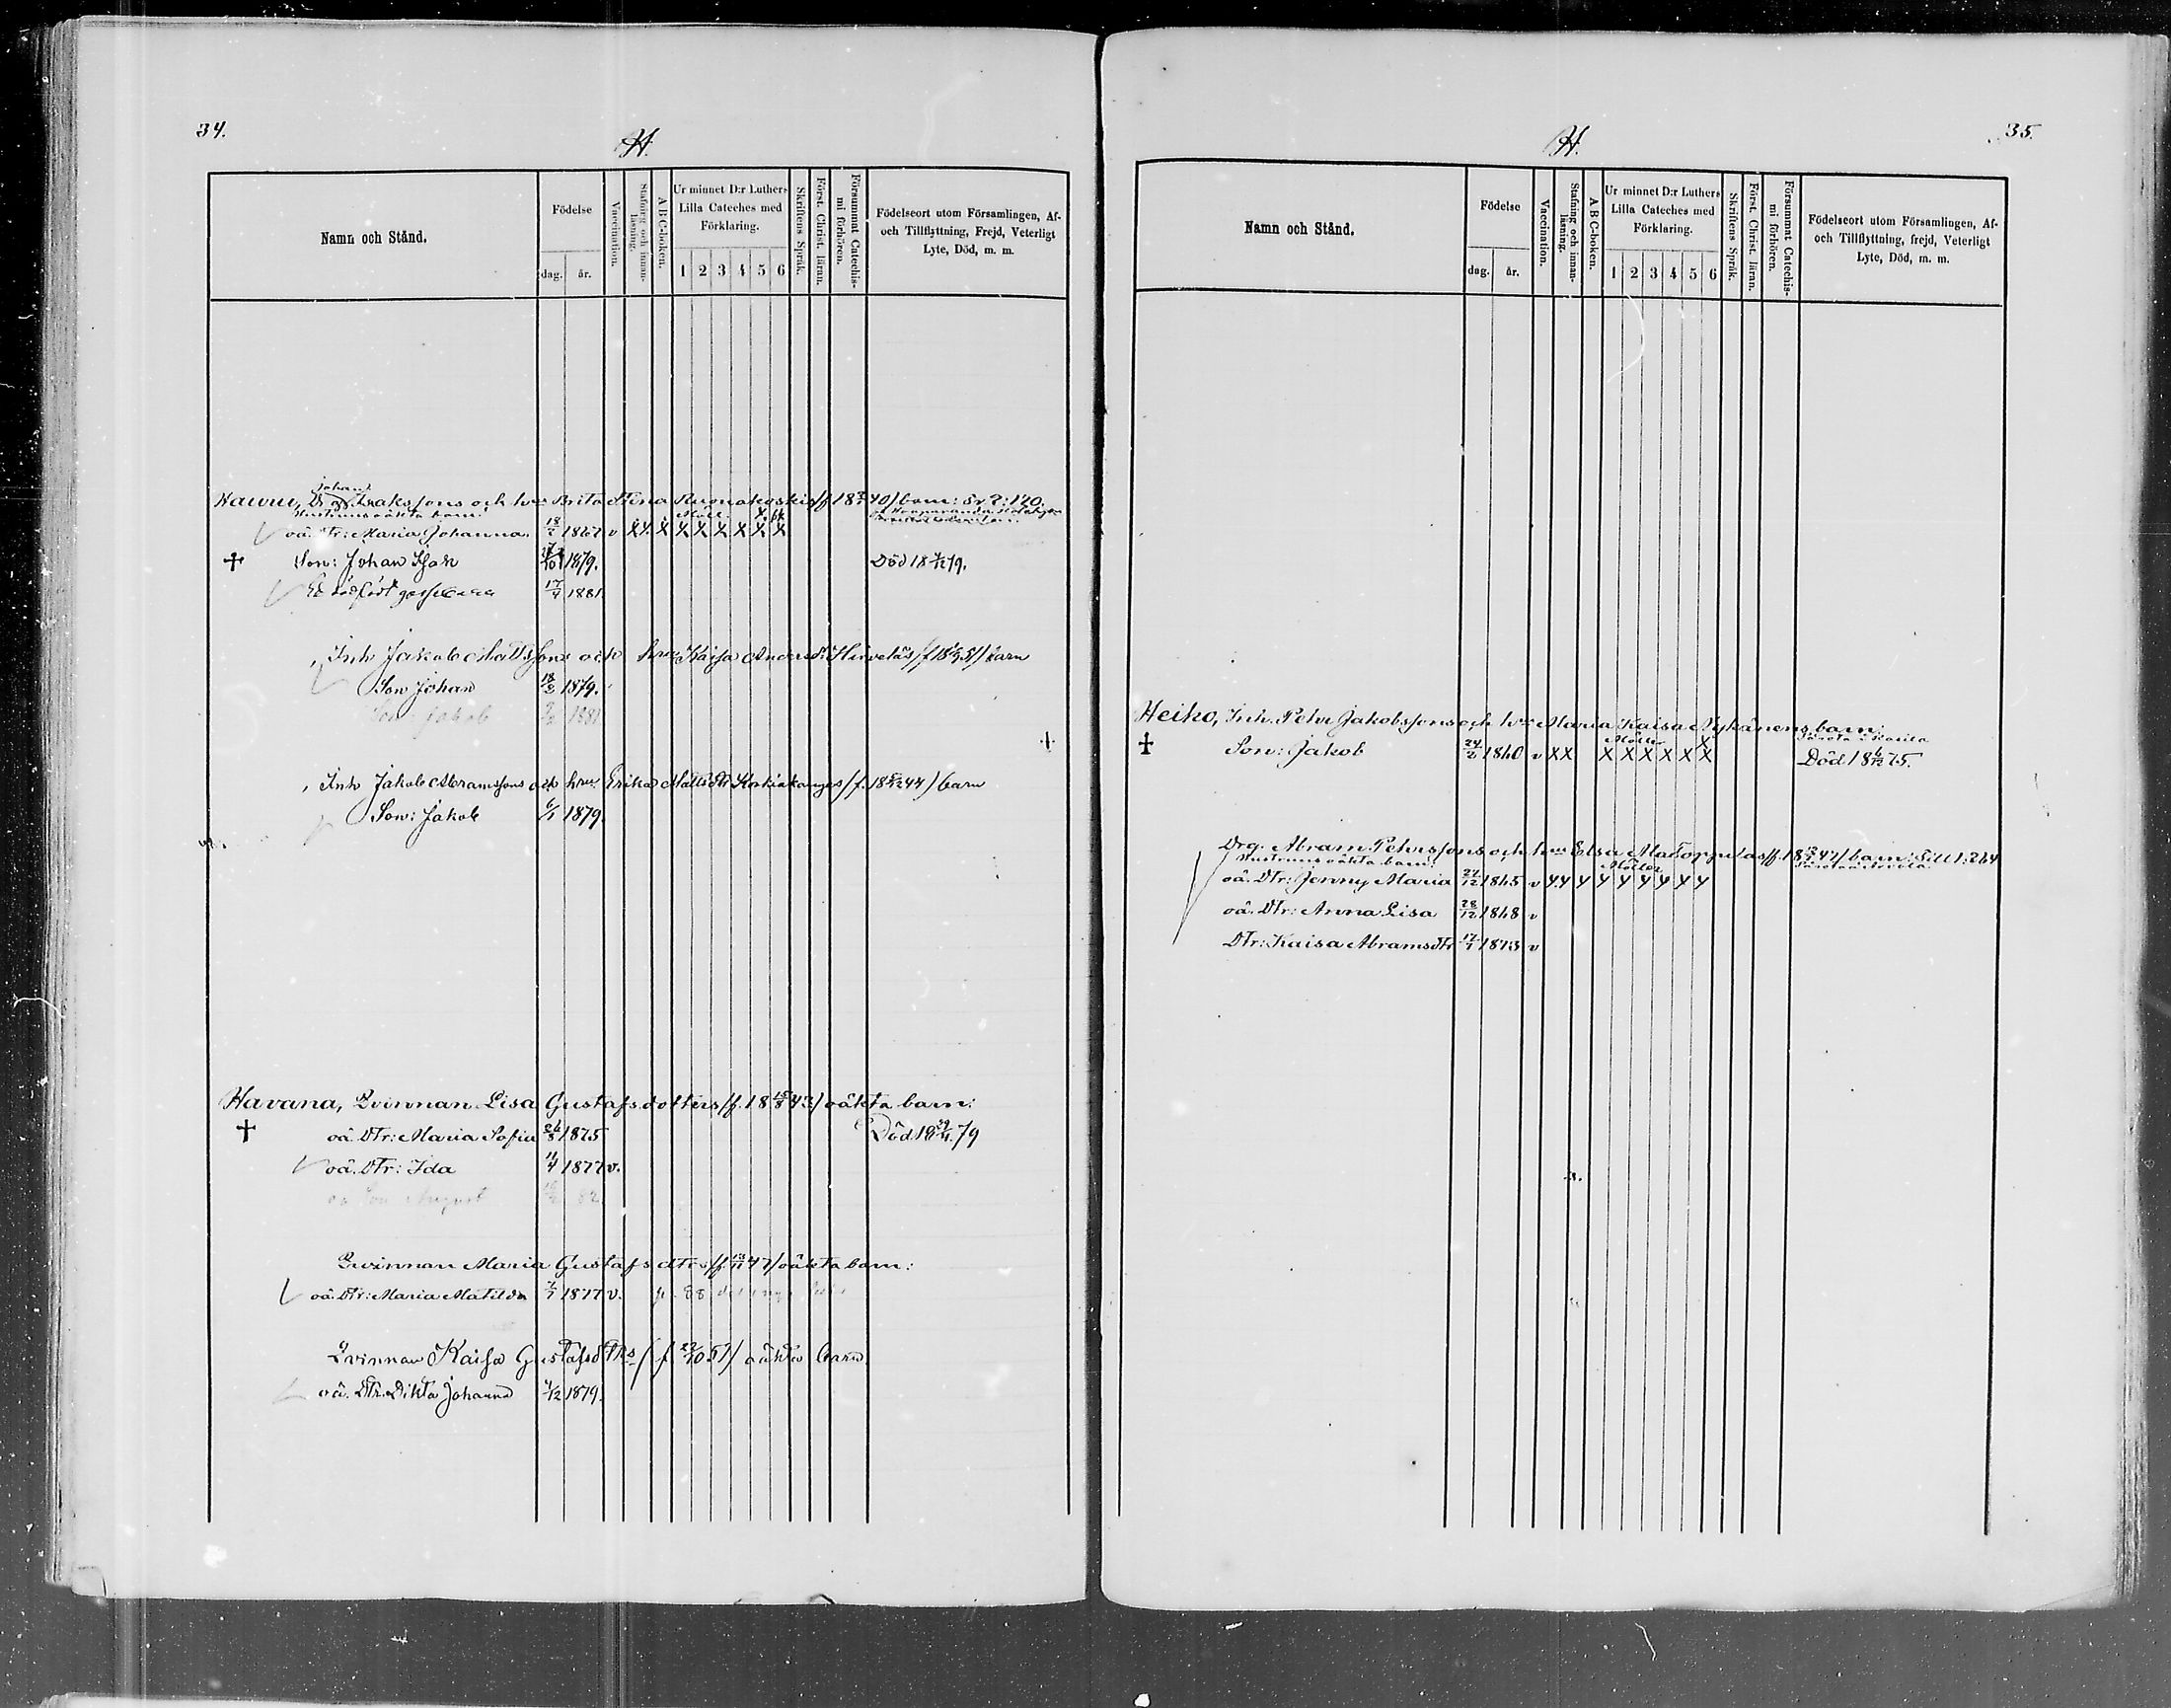 34.
H.
Namn och Stånd.
Födelse
dag. år.
Vaccination.
Stafning och innan-läsning.
A B C-boken.
Ur minnet D:r Luthers
Lilla Cateches med
Förklaring.
1 2 3 4 5 6
Skriftens Språk.
Först. Christ. läran.
Försummat Catechis-mi förhören.
Födelseort utom Församlingen, Af-
och Tillflyttning, Frejd, Veterligt
Lyte, Död, m. m.
Johan
Isakssons och hus Brita Stina Ruonakoskis /f. 18 40/ barn:
Hustruns oäkta barn:
oä. Dtr: Maria Johanna. 18/2 1867 v X X. X X X X X X X
Son: Johan Isak 1879. Död 18 79.
17/4 1881
Inh Jakob Mattssons och hrus Kaisa Andersdr Hirveläs barn
Son Johan 18/3 1879.
Son Jakob 1881
Inh Jakob Abramssons och hrus Erika Mattsdtr Korkiakangas /f. 18 44/ barn
Son: Jakob 6/1 1879.
Havana, Qvinnan Lisa Gustafsdotters /f. 18 43/ oäkta barn:
oä. Dtr: Maria Sofia 1875 Död 18 79
oä. Dtr: Ida 11/4 1877 v.
oä Son August 82
Qvinnan Maria Gustafsdtrs /f. 47/ oäkta barn:
oä. Dtr: Maria Matilda 1877 v.
Qvinnan Kaisa Gustafsdtrs /f. 57/ oäkta barn.
oä. Dtr. Dikta Johanna 4/12 1879.
35.
H.
Namn och Stånd.
Födelse
dag. år.
Vaccination.
Stafning och innan-läsning.
A B C-boken.
Ur minnet D:r Luthers
Lilla Cateches med
Förklaring.
1 2 3 4 5 6
Skriftens Språk.
Först. Christ. läran.
Försummat Catechis-mi förhören.
Födelseort utom Församlingen, Af-
och Tillflyttning, frejd, Veterligt
Lyte, Död, m. m.
Heiko, Inh. Pehr Jakobssons och hus Maria Kaisa Nykänens barn:
Son: Jakob 24/2 1860 v X X X X X X X X Död 18 6/12 75.
Drg. Abram Pehrssons och hus Elsa barn:
Hustruns oäkta barn:
oä. Dtr: Jenny Maria 1865 v
oä. Dtr: Anna Lisa 28/12 1868 v
Dtr: Kaisa Abramsdtr 1873 v